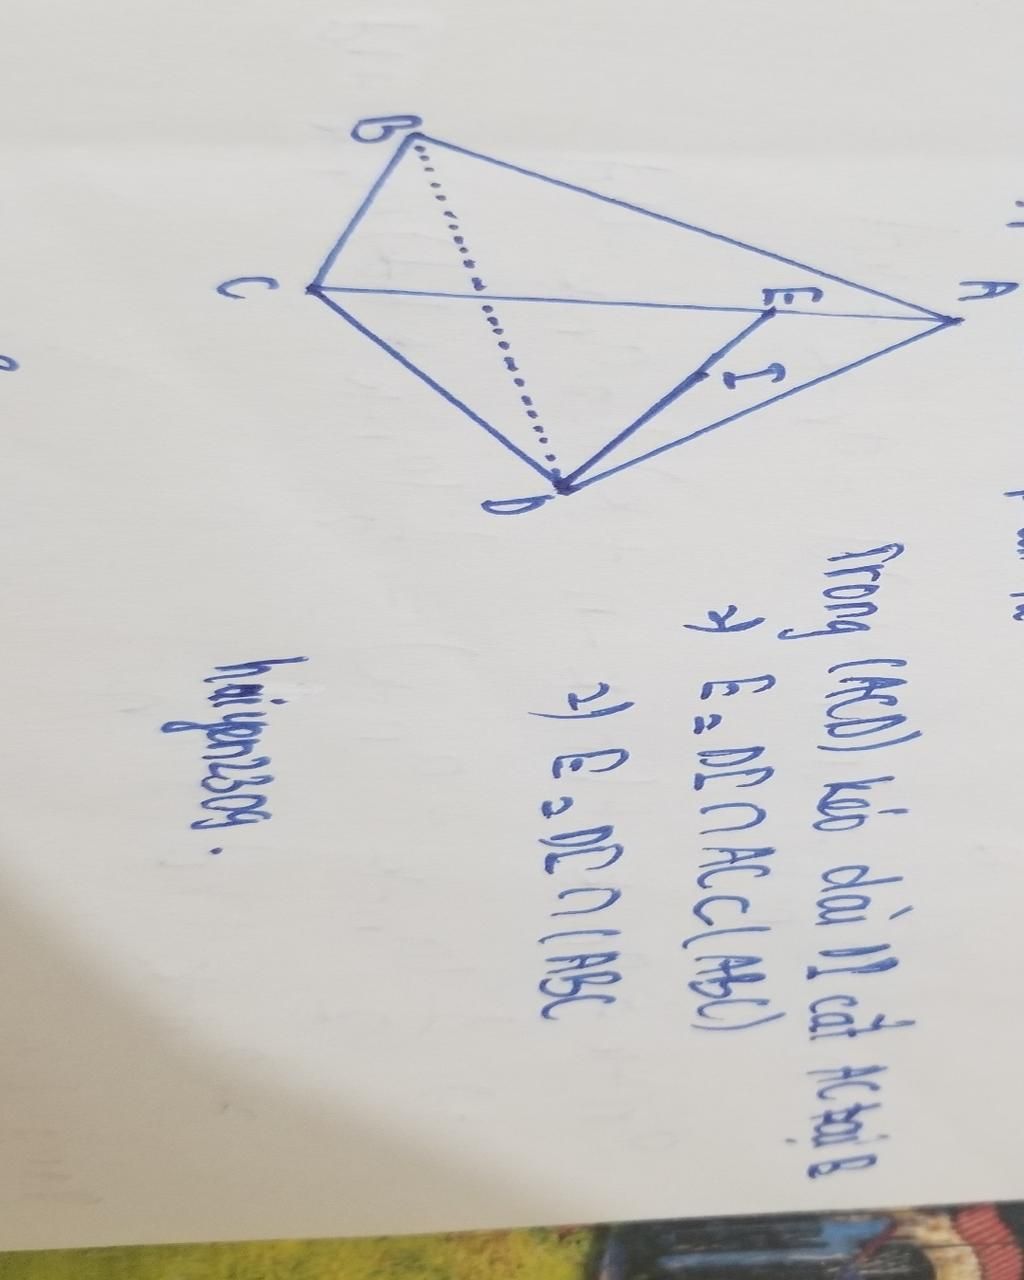 A
B
C
D
E
I
Trong (ACD) kéo dài DI cắt AC tại E
=) E = DI ∩ AC ⊂ (ABC)
=) E = DI ∩ (ABC
haiyen2309.